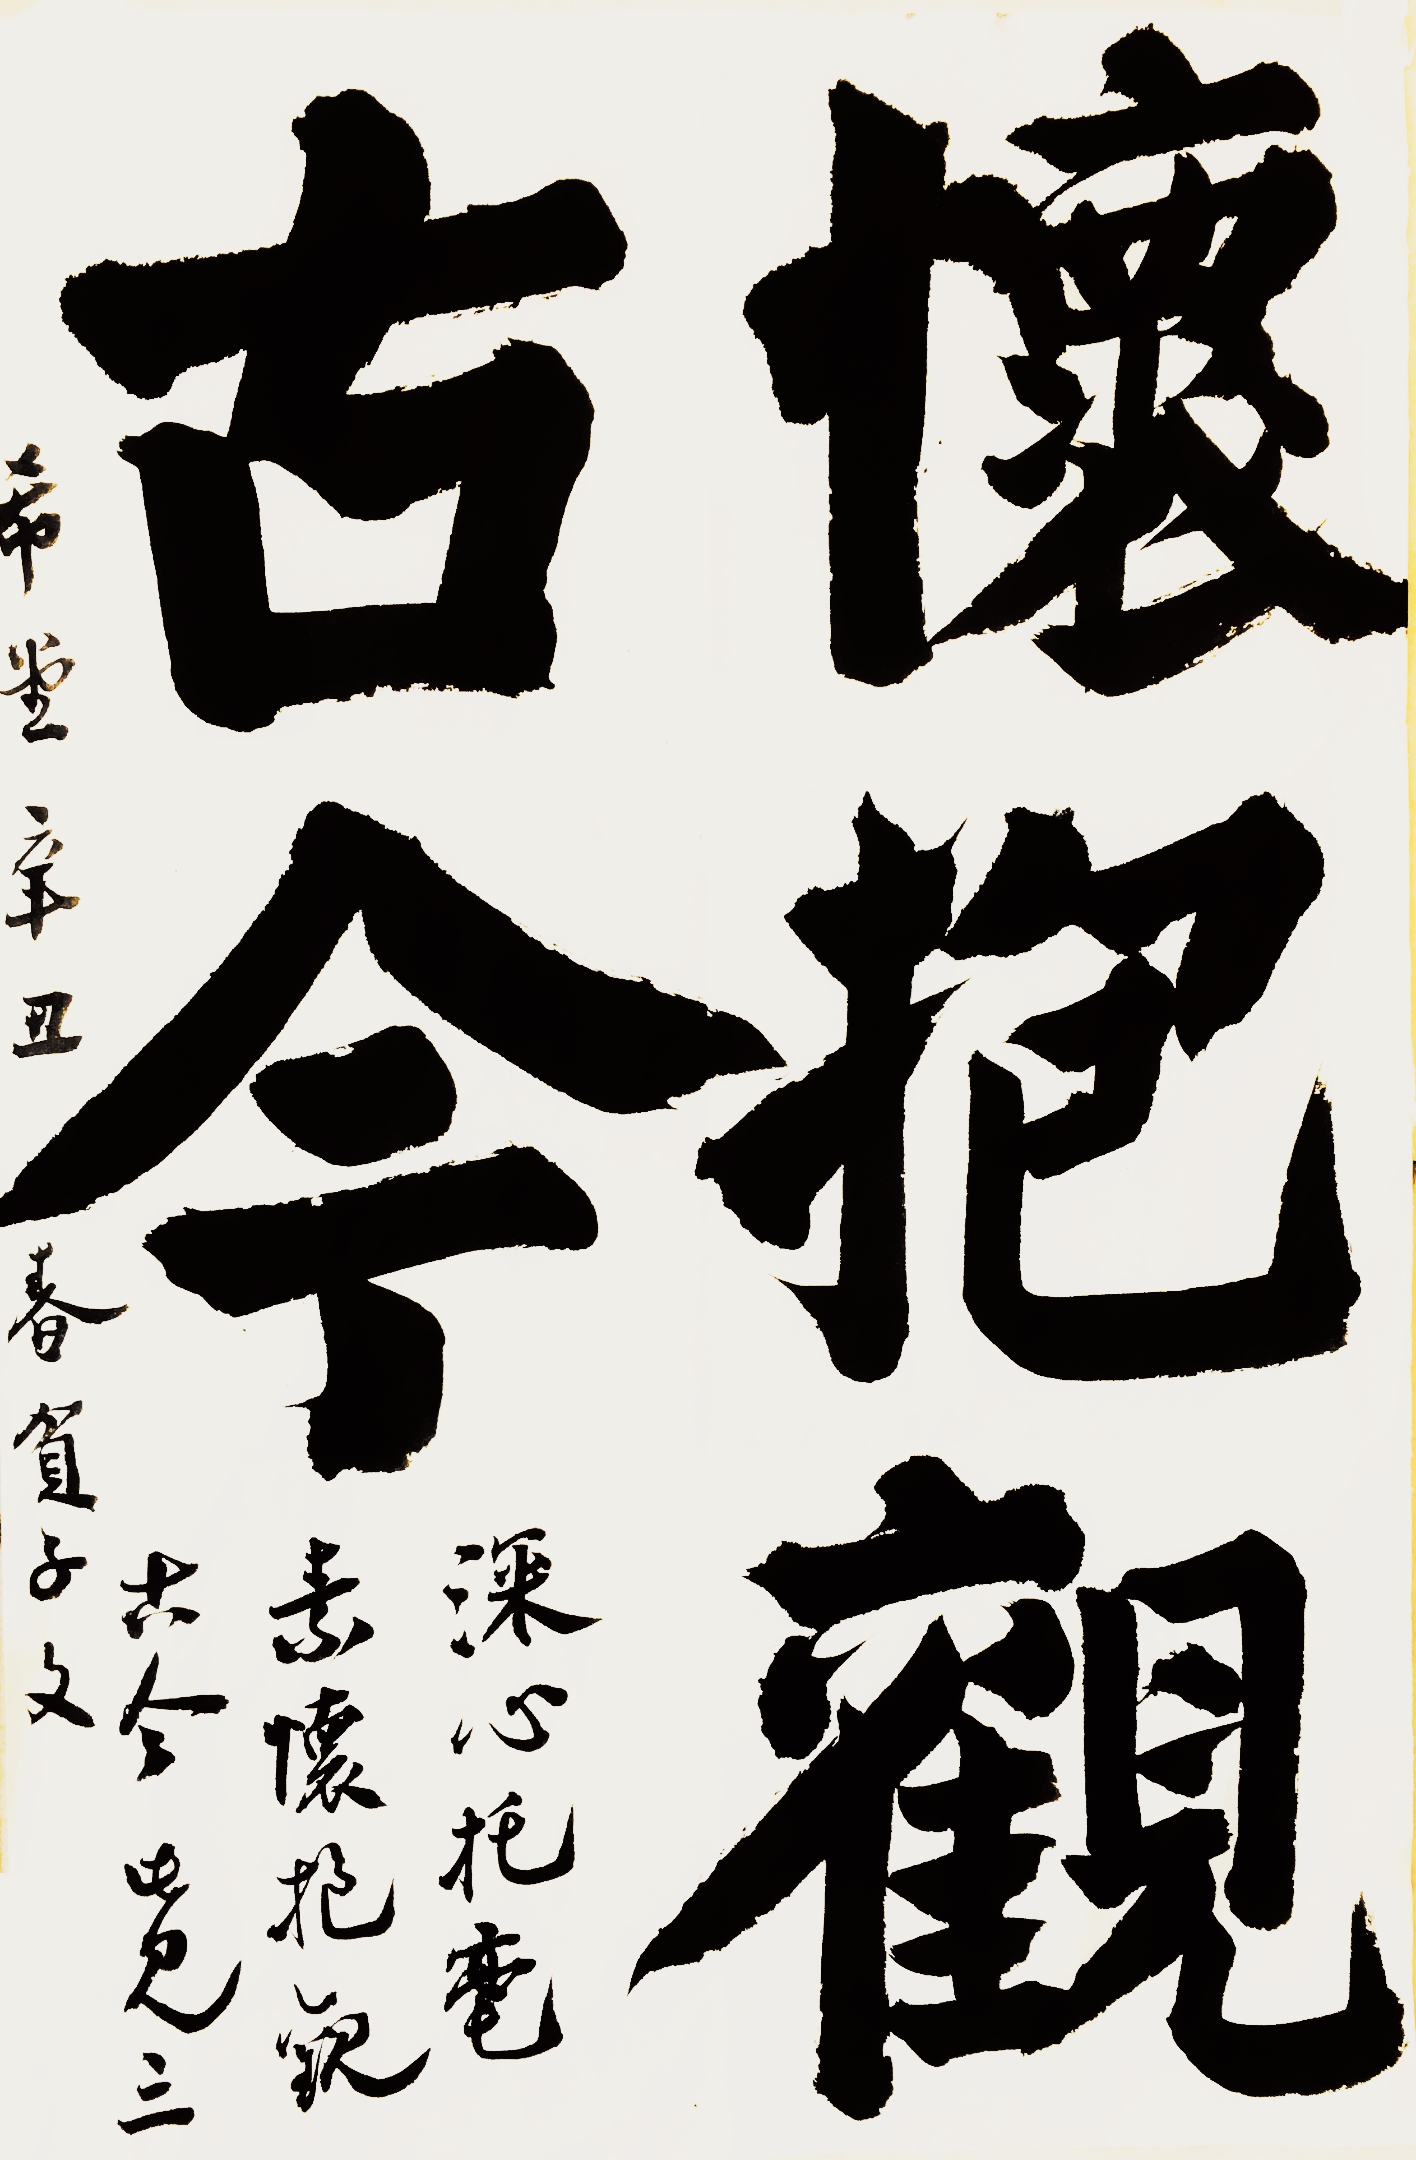 懷抱觀
古今
深心托毫
素懷抱觀
古今三
希堂辛丑春賀子文